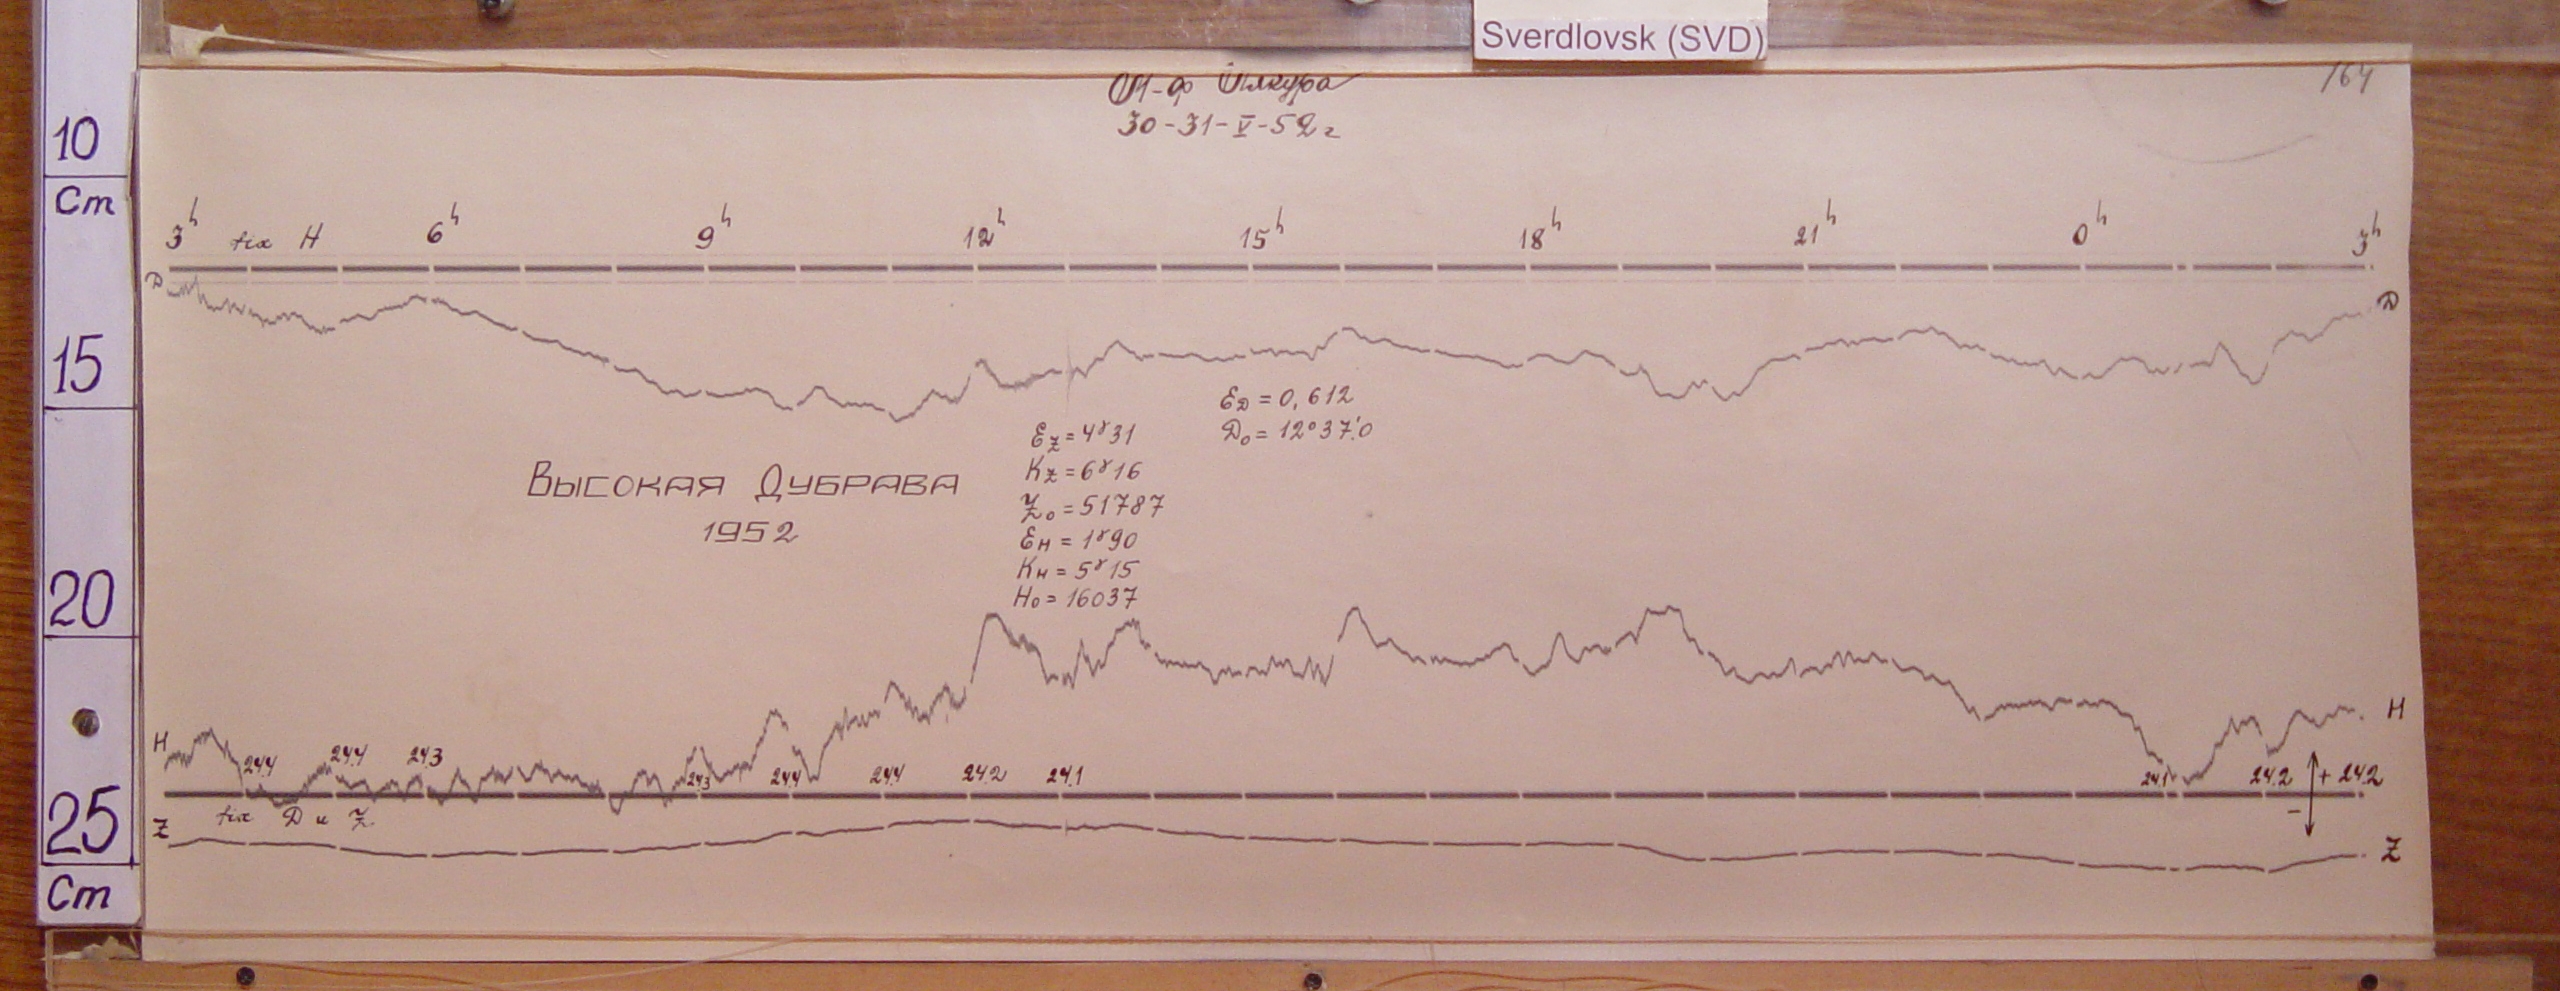 Sverdlovsk (SVD)
30-31-V-52 г
164
10
Cm
15
20
25
Cm
3h fix H 6h 9h 12h 15h 18h 21h 0h 3h
D D
ED = 0,612
D0 = 12°37'.0
EZ = 4γ31
KZ = 6γ16
Z0 = 51787
EH = 1γ90
KH = 5γ15
H0 = 16037
Высокая Дубрава
1952
H H
24.4 24.4 24.3 24.3 24.4 24.4 24.2 24.1 24.1 24.2 + 24.2
fix D и Z −
Z Z